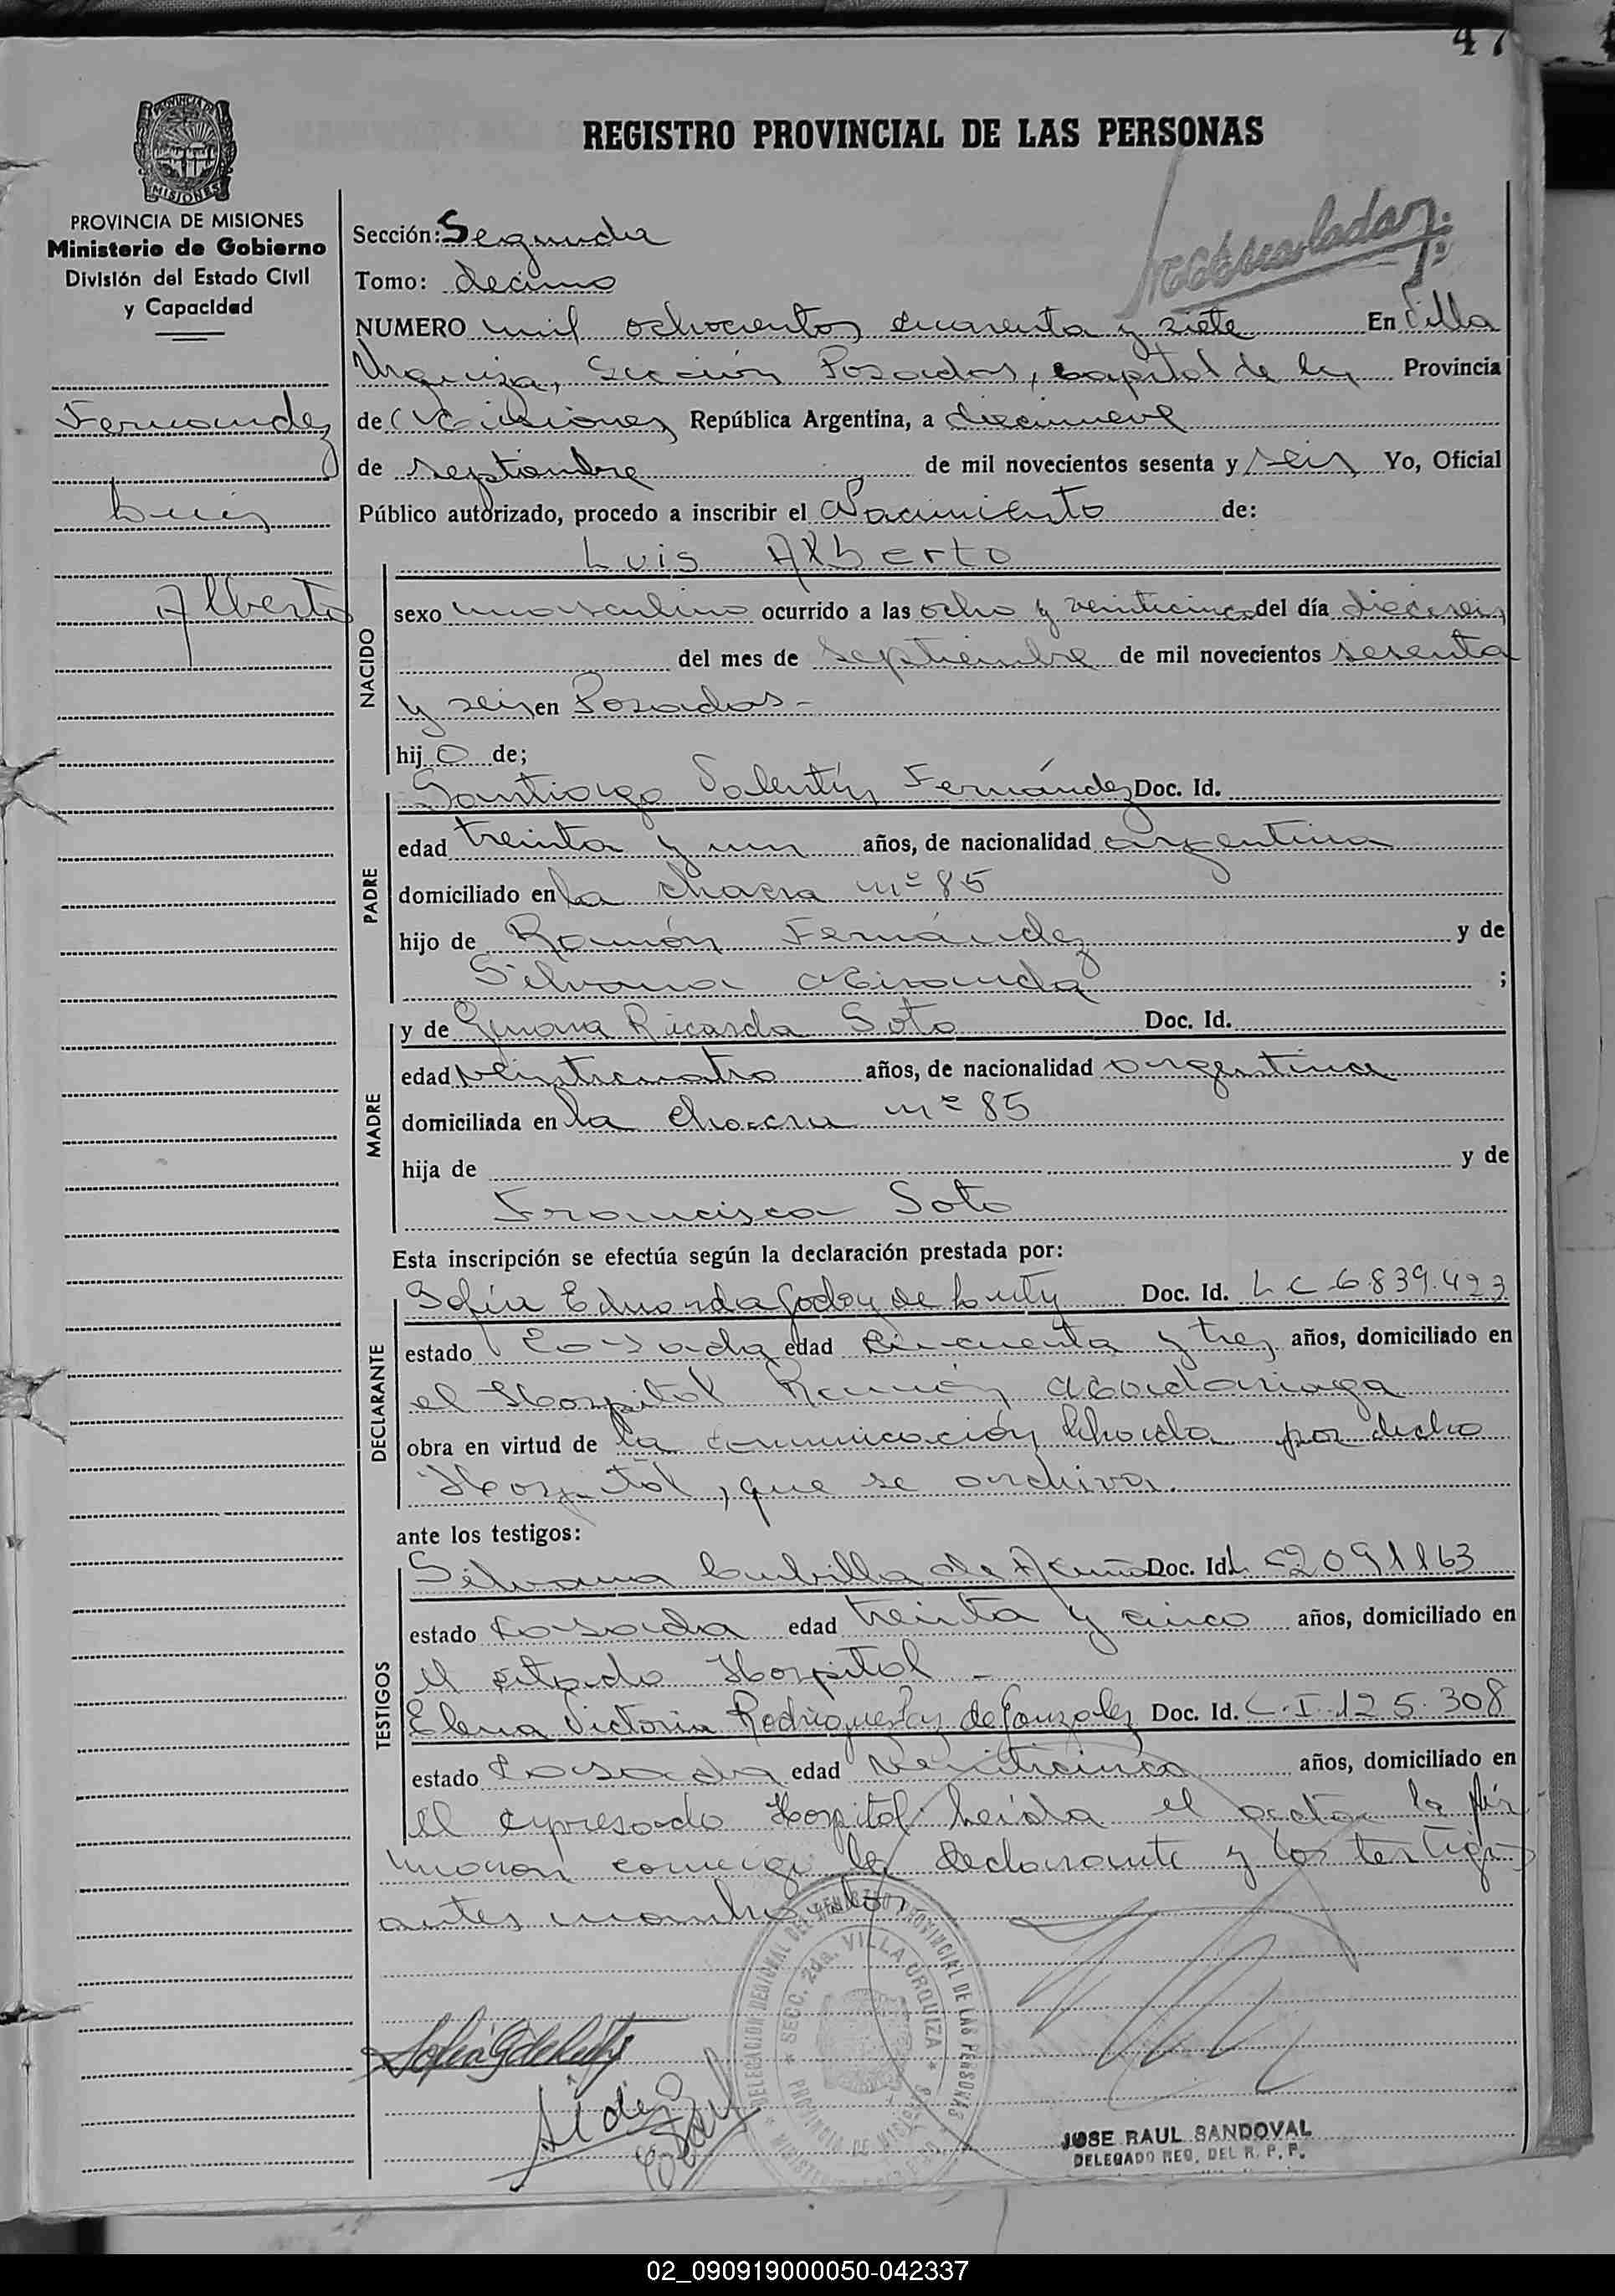 47
REGISTRO PROVINCIAL DE LAS PERSONAS
PROVINCIA DE MISIONES
Ministerio de Gobierno
División del Estado Civil
y Capacidad
Fernandez
Luis
Alberto
Sección: Segunda
Tomo: decimo
NUMERO mil ochocientos cuarenta y siete En Villa
Urquiza, Sección Posadas, capital de la Provincia
de Misiones República Argentina, a diecinueve
de septiembre de mil novecientos sesenta y seis Yo, Oficial
Público autorizado, procedo a inscribir el Nacimiento de:
Luis Alberto
NACIDO
sexo masculino ocurrido a las ocho y veinticinco del día dieciseis
del mes de septiembre de mil novecientos sesenta
y seis en Posadas -
hijo de;
PADRE
Santiago Valentín Fernández Doc. Id.
edad treinta y un años, de nacionalidad argentina
domiciliado en la chacra nº 85
hijo de Ramón Fernández y de
Silvana Miranda ;
MADRE
y de Ricarda Soto Doc. Id.
edad veinticuatro años, de nacionalidad argentina
domiciliada en la chacra nº 85
hija de y de
Francisca Soto
Esta inscripción se efectúa según la declaración prestada por:
DECLARANTE
Sofía Eduarda Godoy de Doc. Id. L C 6.839.423
estado casada edad cincuenta y tres años, domiciliado en
el Hospital Ramón Madariaga
obra en virtud de la comunicación librada por dicho
Hospital, que se archiva.
ante los testigos:
TESTIGOS
Silvana Cubilla de Acuña Doc. Id. L C 2091163
estado casada edad treinta y cinco años, domiciliado en
el citado Hospital -
Elena Victoria Rodriguez de Gonzalez Doc. Id. C.I. 125.308
estado casada edad veinticinco años, domiciliado en
el expresado Hospital leída el acta la fir
maron conmigo la declarante y los testigos
antes nombrados
DELEGACION REGIONAL DEL REGISTRO PROVINCIAL DE LAS PERSONAS
SECC. 2da. VILLA URQUIZA
PROVINCIA DE MISIONES
JOSE RAUL SANDOVAL
DELEGADO REG. DEL R. P. P.
02_090919000050-042337